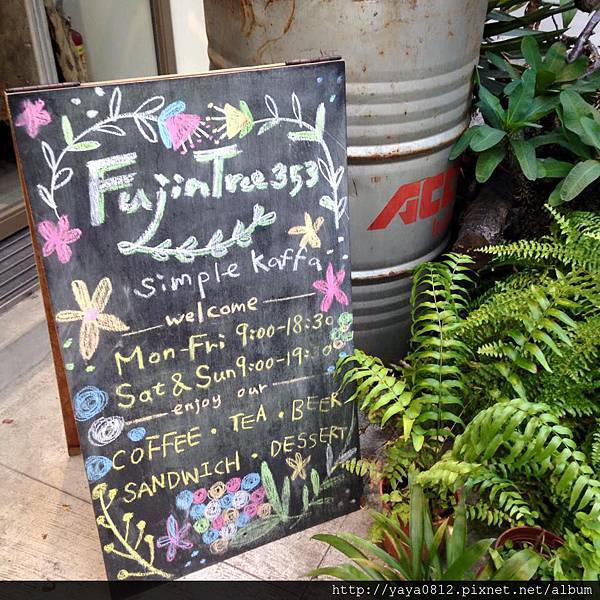 FujinTree353
simple kaffa
welcome
Mon-Fri 9:00-18:30
Sat & Sun 9:00-19:30
enjoy our
COFFEE · TEA · BEER
SANDWICH · DESSERT
http://yaya0812.pixnet.net/album